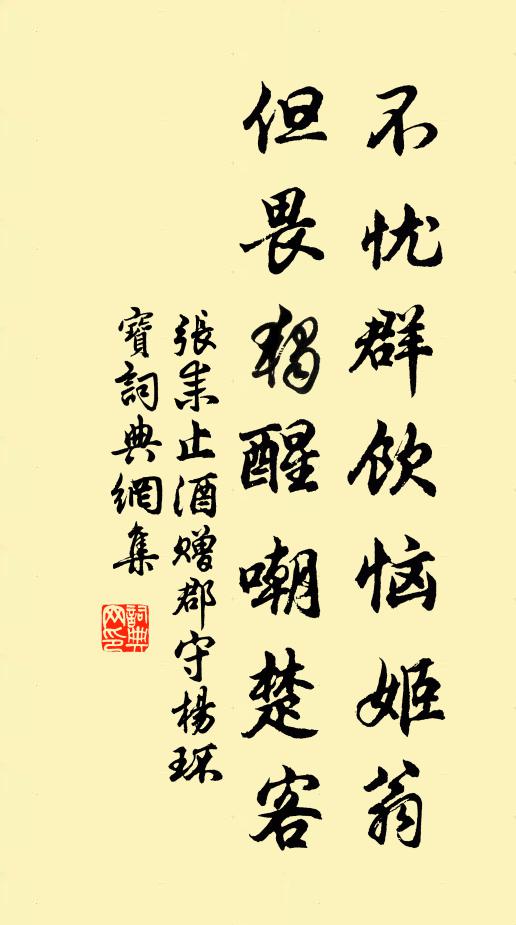 不忧群饮恼姬翁
但畏獨醒嘲楚客
張耒止酒赠郡守楊环
寳詞典網集
詞典
网印